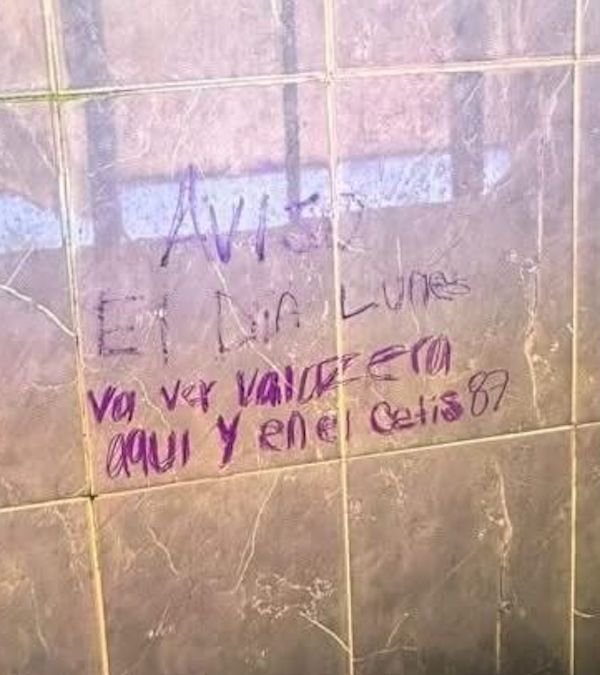 AVISO
El DIA LUNes
va ver valaceera
aquí y en el Cetis 87